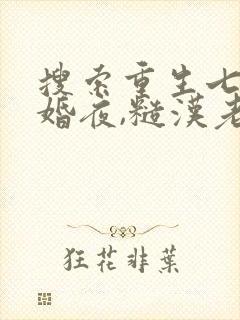 搜索重生七
婚夜,糙漢老
狂花非葉